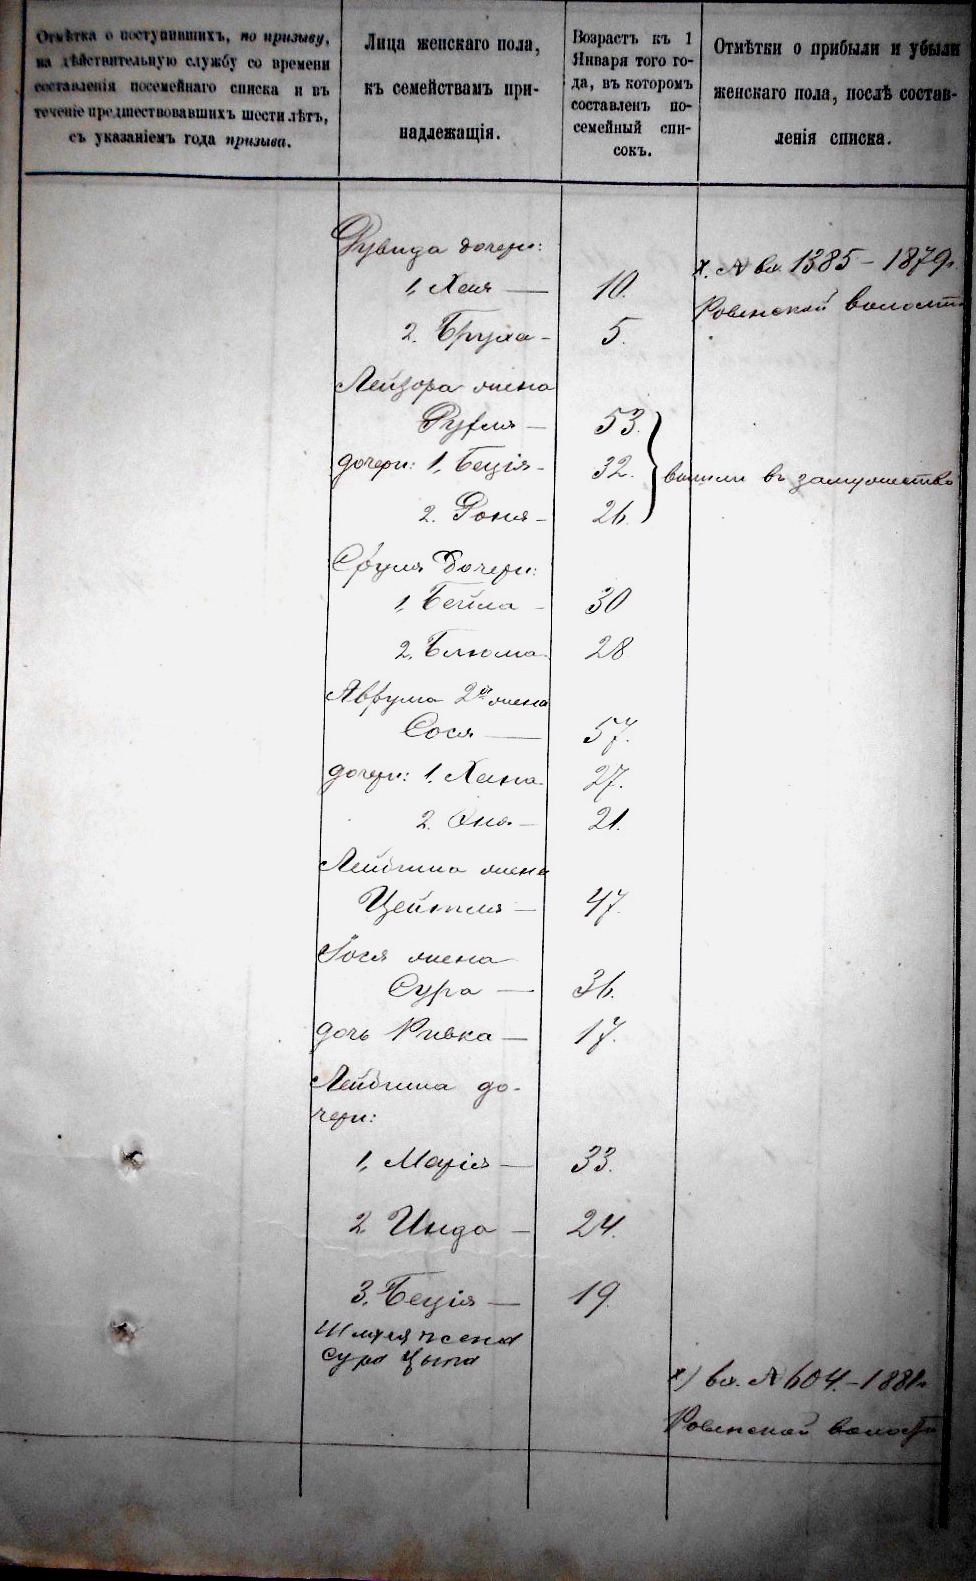 Отмѣтка о поступившихъ, по призыву,
на дѣйствительную службу со времени
составленія посемейнаго списка и въ
теченіе предшествовавшихъ шести лѣтъ,
съ указаніемъ года призыва.
Лица женскаго пола,
къ семействамъ при-
надлежащія.
Возрастъ къ 1
Января того го-
да, въ которомъ
составленъ по-
семейный спи-
сокъ.
Отмѣтки о прибыли и убыли
женскаго пола, послѣ состав-
ленія списка.
Рувида дочери:
1, Хая — 10.
х. № вх. 1385 – 1879г.
Ровенской волости
2. Бруха – 5.
Лейзора жена
Рухля – 53.
дочери: 1, Бецiя – 32.
вышли въ замужество
2. Роня – 26.
Сруля дочери:
1, Бейла – 30
2, Блюма 28
Аврума 2я жена
Сося — 57.
дочери: 1. Хана 27.
2. Эня – 21.
Лейбиша жена
Цейтля – 47.
Іося жена
Сура — 36.
дочь Ривка – 17.
Лейбиша до-
чери:
1, Марія – 33.
2 Инда – 24.
3. Бецiя – 19.
жена
Сура
х) вх. № 604. – 1881г.
Ровенской волости